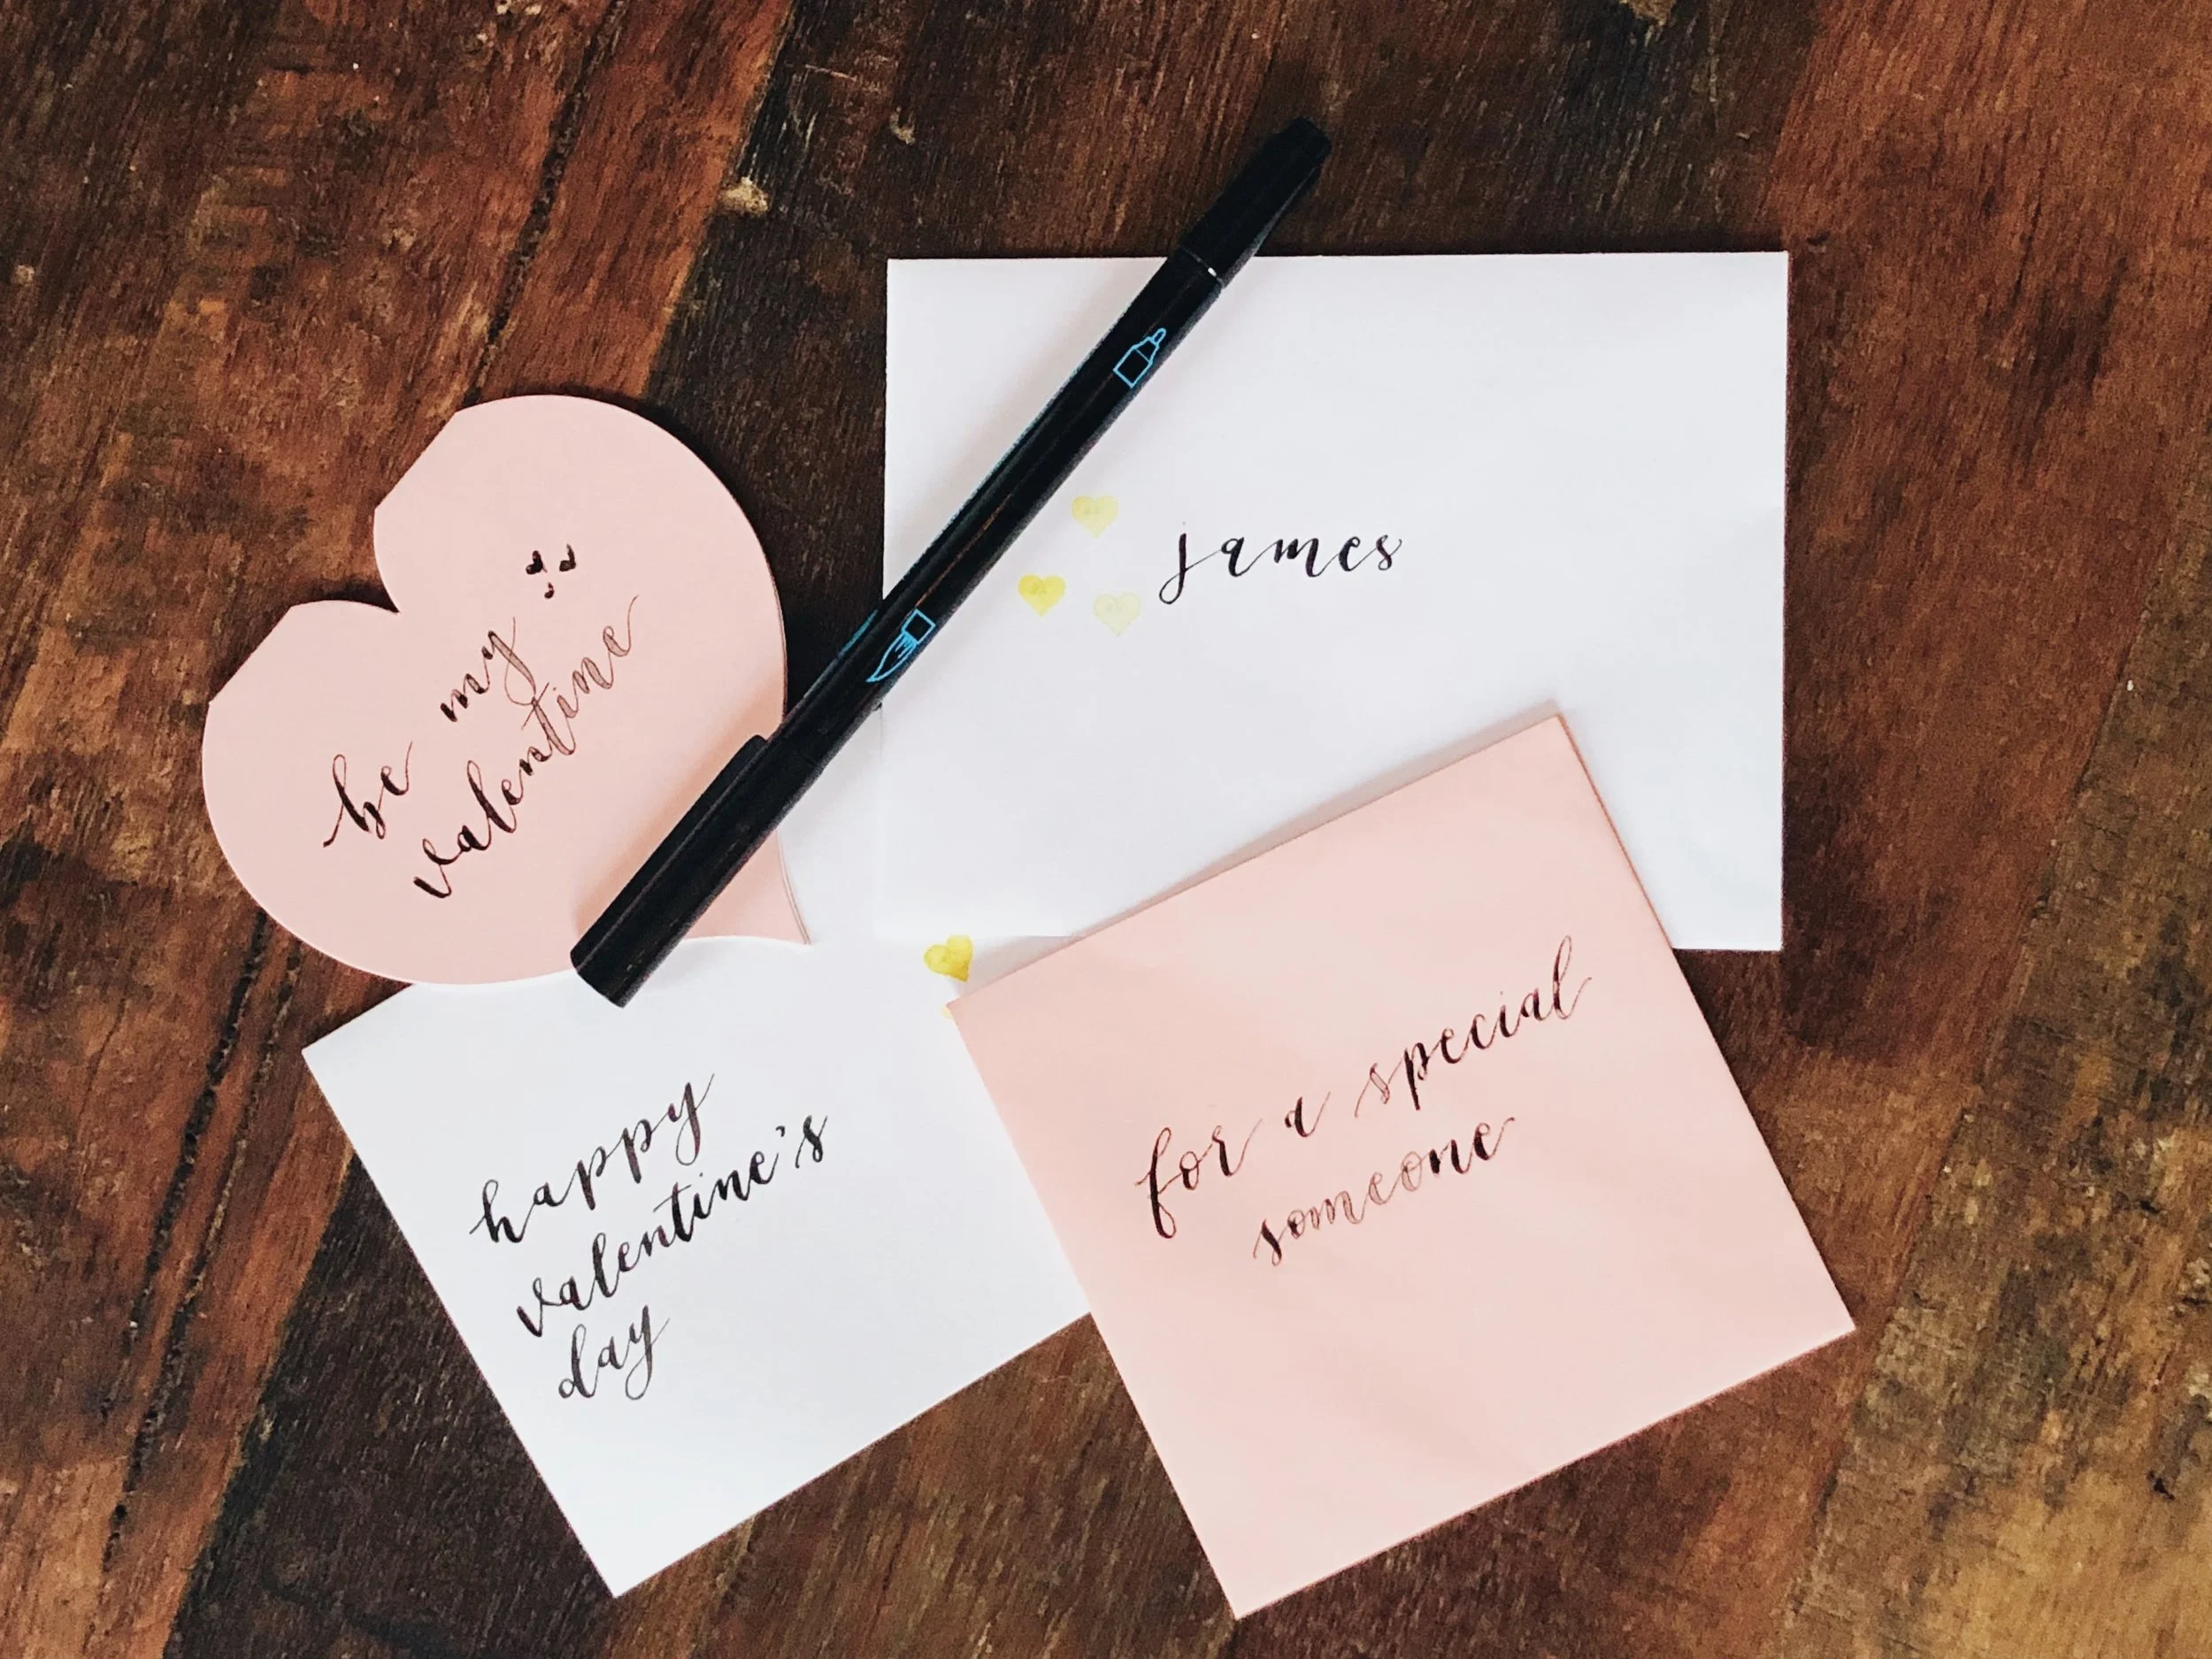 be my
valentine
james
happy
valentine's
day
for a special
someone